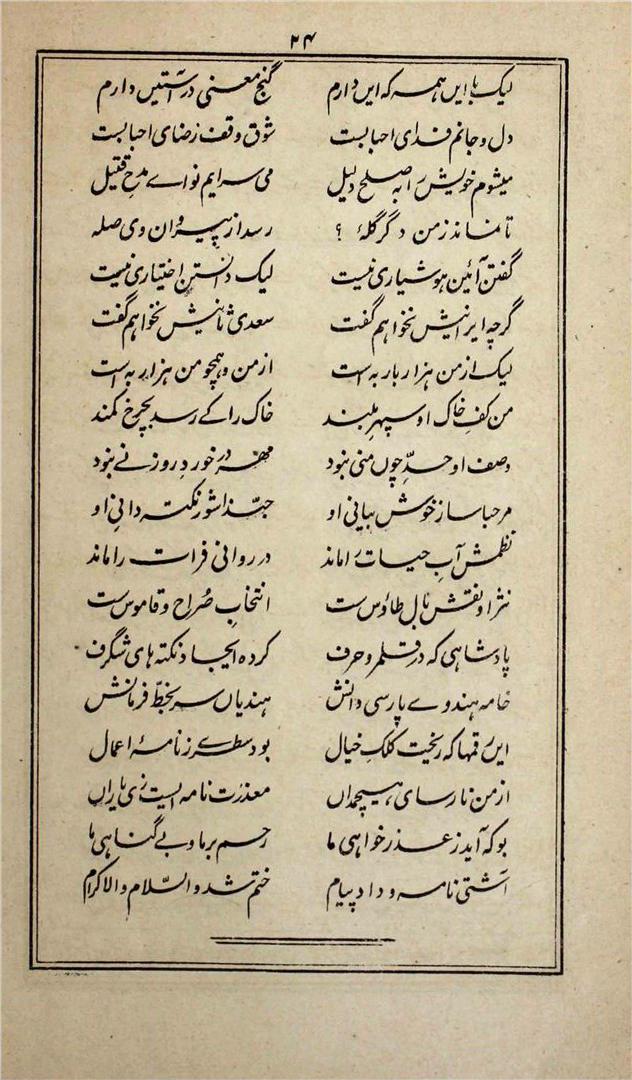 ۲۴
لیک با ایں ہمہ کہ ایں دارم گنج معنی در آستیں دارم
دل و جانم فدای احبابست شوق وقف رضای احبابست
میشوم خویش را بہ صلح دلیل می سرایم نواے مدح قتیل
تا نماند ز من دگر گلۂ ؟ رسد از پیروان وی صلہ
گفتن آئین ہوشیاری نیست لیک دانستن اختیاری نیست
گرچہ ایرانیش نخواہم گفت سعدی ثانیش نخواہم گفت
لیک از من ہزار بار بہ است از من و ہمچو من ہزار بہ است
من کف خاک او سپہر بلند خاک را کے رسد بچرخ کمند
وصف او حدّ چوں منی نبود مہر در خورد روزنے نبود
مرحبا ساز خوش بیانی او حبّذا شور نکتہ دانی او
نظمش آب حیات را ماند در روانی فرات را ماند
نثر او نقش بال طاؤس ست انتخاب صُراح و قاموس ست
پادشاہی کہ در قلمرو حرف کردہ ایجاد نکتہ ہای شگرف
خامہ ہندوے پارسی دانش ہندیاں سر بخطّ فرمانش
ایں رقمہا کہ ریخت کلک خیال بود سطرے ز نامۂ اعمال
از من نارسای ہیچمداں معذرت نامہ ایست زی یاراں
بو کہ آید ز عذر خواہی ما رحم بر ما و بے گناہی ما
آشتی نامہ و داد پیام ختم شد و السّلام و الاکرام